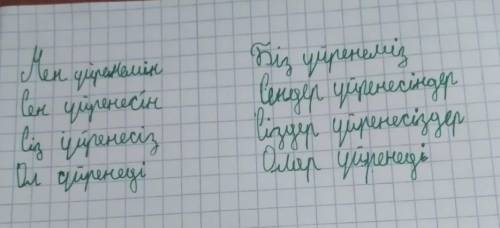 Мен үйренемін
Сен үйренесін
Сіз үйренесіз
Ол үйренеді
Біз үйренеміз
Сендер үйренесіндер
Сіздер үйренесіздер
Олар үйренеді